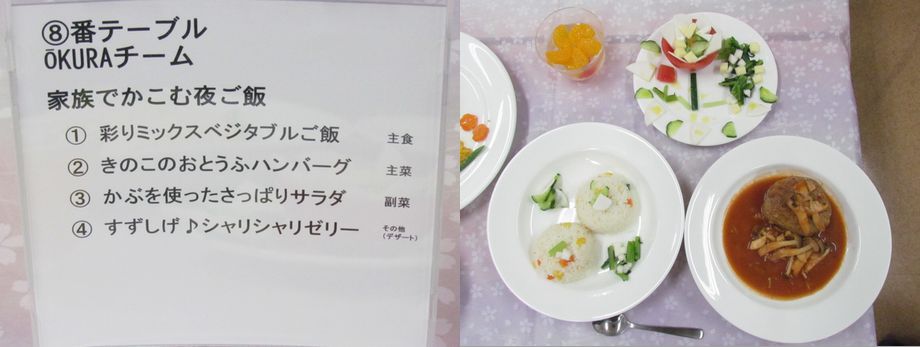 ⑧番テーブル
ŌKURAチーム
家族でかこむ夜ご飯
① 彩りミックスベジタブルご飯 主食
② きのこのおとうふハンバーグ 主菜
③ かぶを使ったさっぱりサラダ 副菜
④ すずしげ♪シャリシャリゼリー その他(デザート)